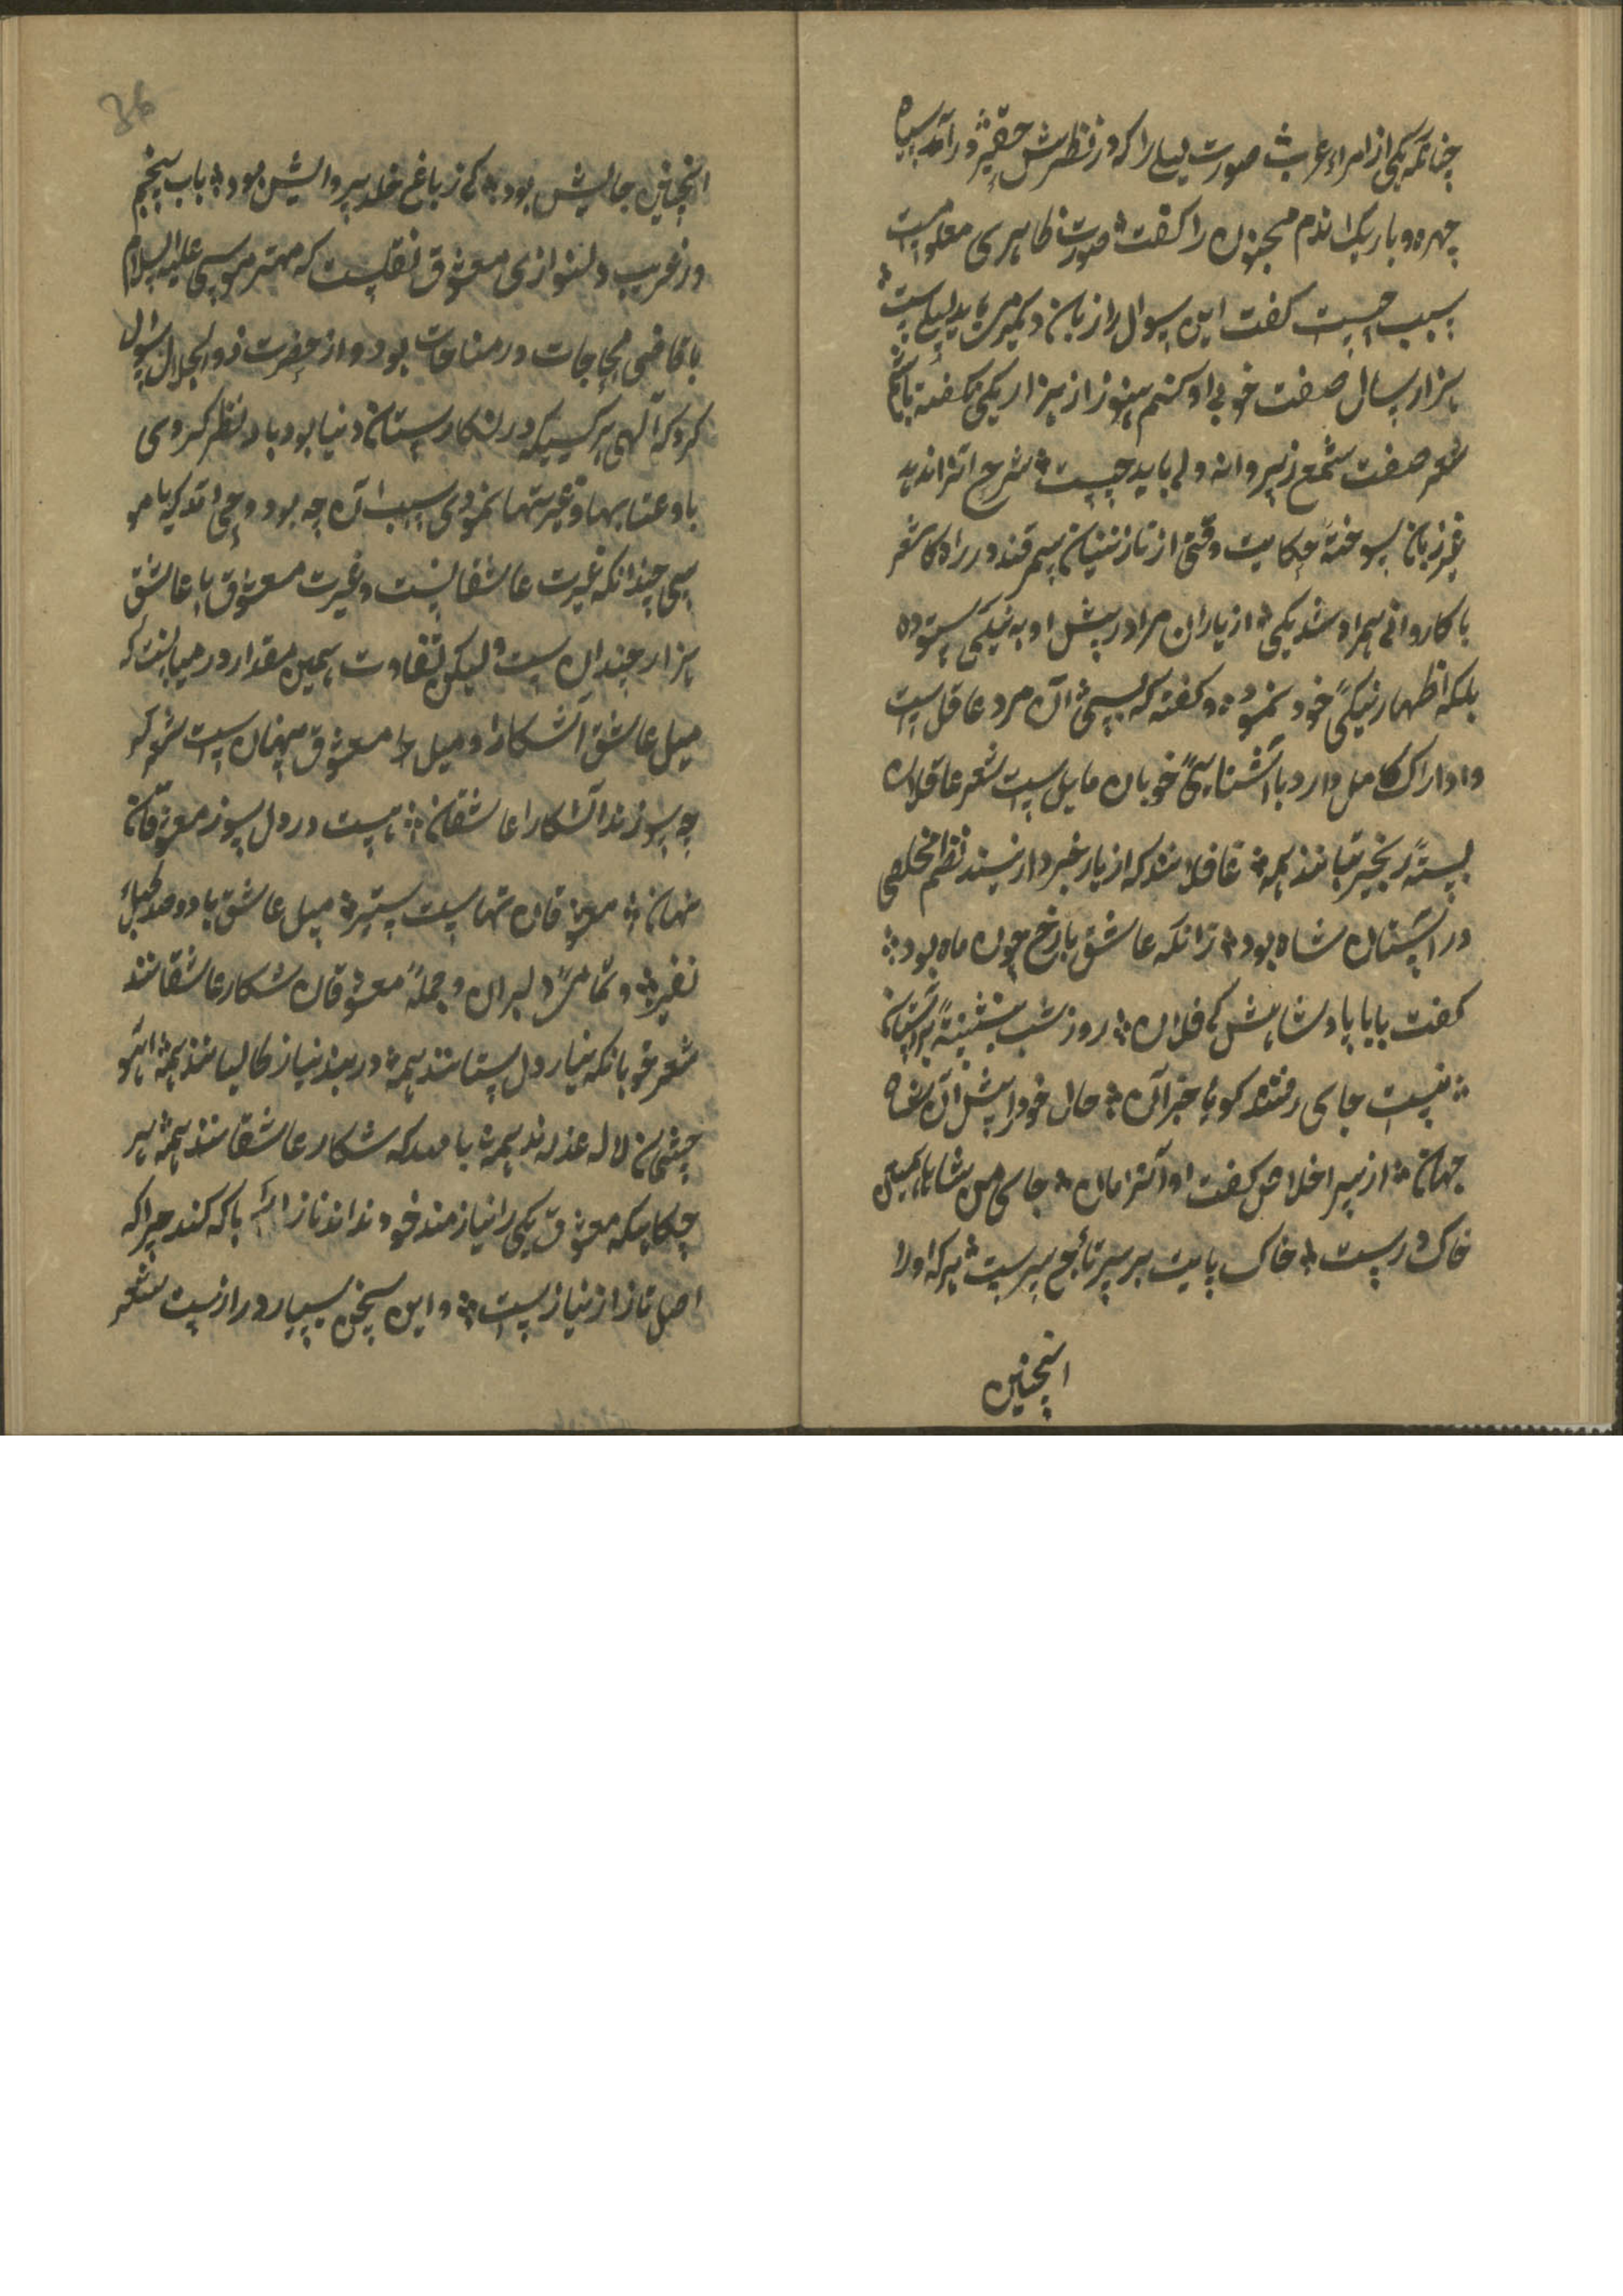 چنانکه یکی از امراء عرب صورت لیلی را که در نظرش حقیر درآمد سیاه
چهره و باریک اندام مجنون را گفت صورت ظاهری معلومست
سبب چیست گفت این سوال را از زبان دیگر می باید لیلی است
هزار سال صفت خوبی او کنم هنوز از هزار یکی نگفته باشم
شعر صفت شمع ز پروانه دلی باید جست شرح اتواند به
غیر زبان سوخته حکایت وقتی از نازنینان سمرقند در راه کاشغر
با کاروانی همراه شد یکی از یاران مرا در پیش او به نیکی ستوده
بلکه اظهار نیکی خود نموده و گفته که بسی آن مرد عاقل است
و ادراک کامل دارد با آشنایی خوبان مایل است شعر عاقلان
بسته زنجیر تباند همه غافلانند که از یار خبردار نیند نظم مخلصی
در آستان شاه بود زانکه عاشق با رخ چون ماه بود
گفت بابا پادشاهش کی فلان روز شب بنشینی بر آستان
نیست جای رفتن گویا خبر آن حال خود را پیش آن شاه
جهان از سر اخلاص گفت او آنزمان جای من شاها همین
خاک درست خاک پایت بر سر تاج سرست هر که او را
اینچنین
36
اینچنین جالیش بود کی ز باغ خلد پروایش بود باب پنجم
در غریب دلنوازی معشوق نقلست که مهتر موسی علیه السلام
با قاضی حاجات در مناجات بود و از حضرت ذوالجلال سوال
کرد که آلهی هر کسیکه در نگارستان دنیا بود باد نظر کردی
با و عتابها و غیرتها نمودی سبب آن چه بود وحی آمد که یا مو
سی چندانکه غیرت عاشقانست و غیرت معشوق با عاشق
هزار چندان ست ولیکن تفاوت همین مقدار در میانست که
میل عاشق آشکارا و میل معشوق پنهان ست شعر گر
چه سوزند آشکارا عاشقان هست در دل سوز معشوقان
نهان میل معشوقان نهانست ستیر میل عاشق با دو صد طبل
نفیر و تمامی دلبران و جمله معشوقان شکار عاشقانند
شعر خوبانکه نیاز دل ستانند همه در بند نیاز طالبانند همه آهو
چشمان لاله عذارند همه با که شکار عاشقانند همه هر
چکایکه معشوق یکی را نیازمند خود نداند ناز را با که کند چرا که
اصل ناز از نیاز ست و این سخن بسیار درازست شعر